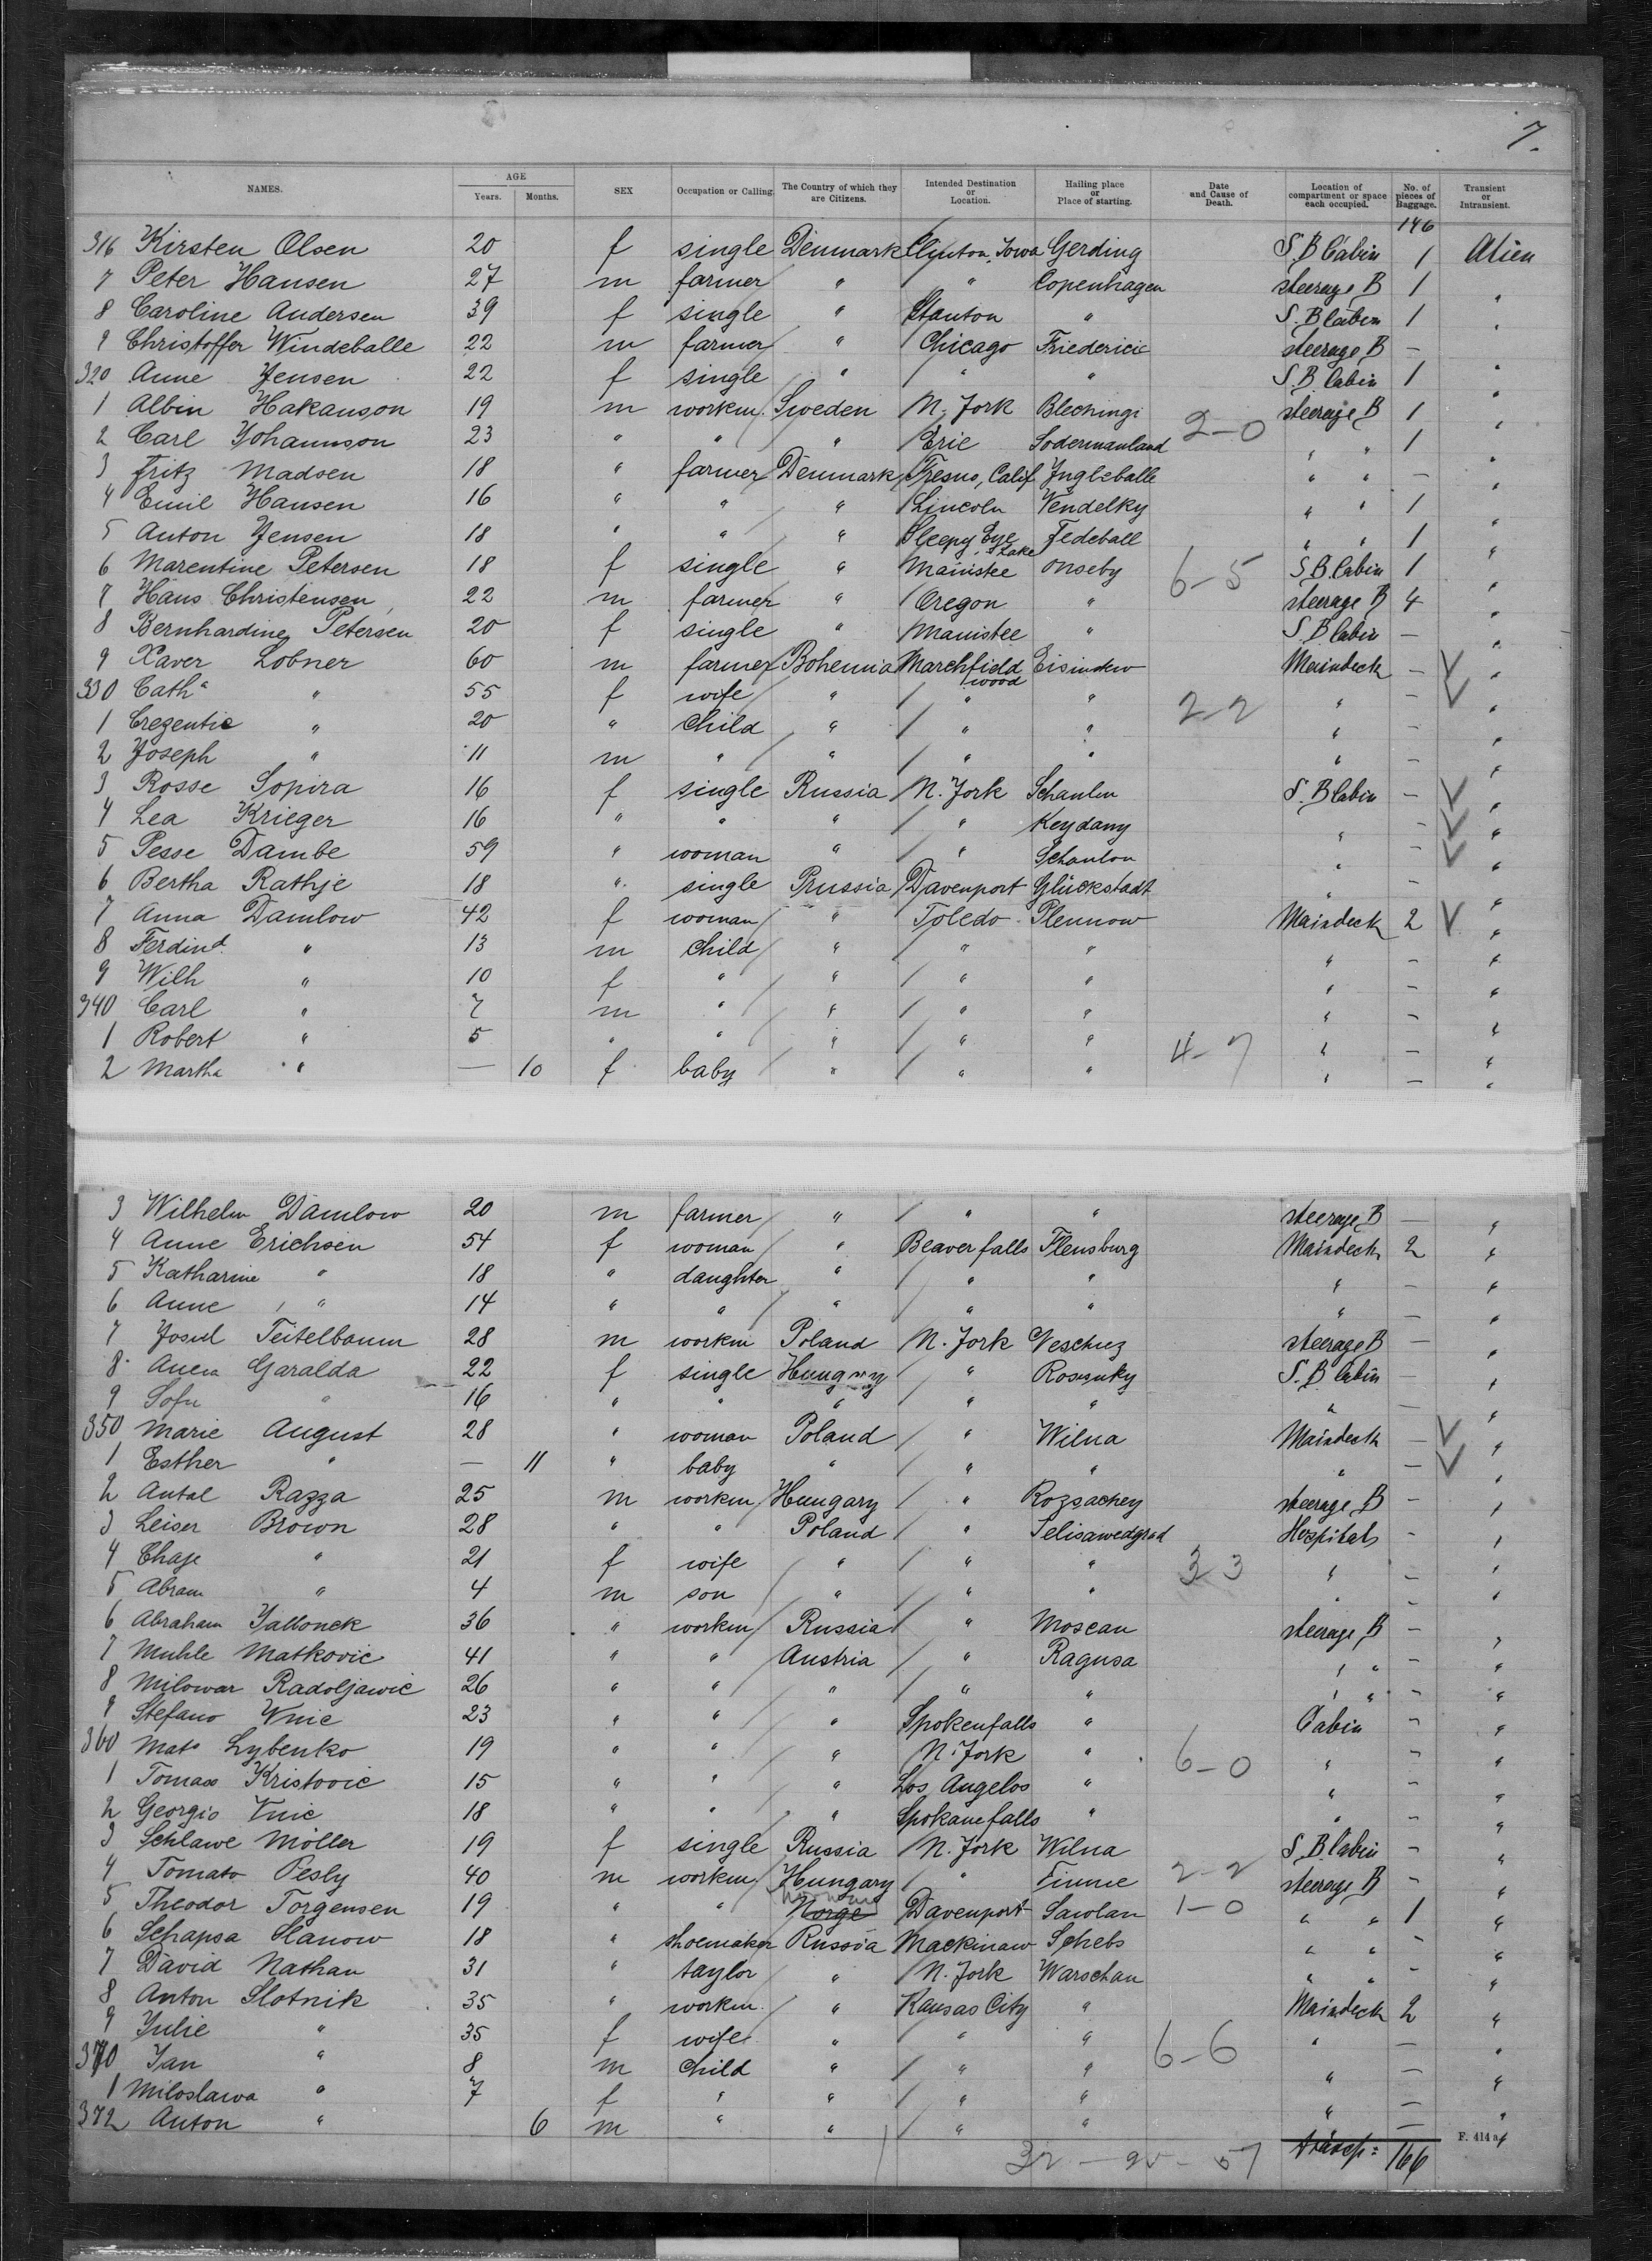 7.
NAMES. AGE Years. Months. SEX Occupation or Calling. The Country of which they are Citizens. Intended Destination or Location. Hailing place or Place of starting. Date and Cause of Death. Location of compartment or space each occupied. No. of pieces of Baggage. Transient or Intransient.
146
316 Kirsten Olsen 20 f single Denmark Clinton, Iowa Gerding S.B Cabin 1 Alien
7 Peter Hansen 27 m farmer " " Copenhagen steerage B 1 "
8 Caroline Andersen 39 f single " Stanton " S. B Cabin 1 "
9 Christoffer Windeballe 22 m farmer " Chicago Friedericia steerage B — "
320 Anne Jensen 22 f single " " " S B Cabin 1 "
1 Albin Hakanson 19 m workm. Sweden N. York Blechingi steerage B 1 "
2 Carl Johannson 23 " " " Erie Sodermanland 2-0 " " 1 "
3 Fritz Madsen 18 " farmer Denmark Fresno, Calif Ingleballe " " — "
4 Emil Hansen 16 " " " Lincoln Vendelky " " 1 "
5 Anton Jensen 18 " " " Sleepy Eye Lake Fedeball " " 1 "
6 Marentine Petersen 18 f single " Manistee Onseby 6-5 S B Cabin 1 "
7 Hans Christensen 22 m farmer " Oregon " steerage B 4 "
8 Bernhardine Petersen 20 f single " Manistee " S. B Cabin — "
9 Xaver Lobner 60 m farmer Bohemia Marchfield wood Eisindew Maindeck — V "
330 Cath " 55 f wife " " " " — V "
1 Cregentie " 20 " child " " " 2-2 " — "
2 Joseph " 11 m " " " " " — "
3 Rosse Sopira 16 f single Russia N. York Schaulen S. B Cabin — V "
4 Lea Krieger 16 " " " " Keydany " — V "
5 Pesse Dambe 59 " woman " " Schaulen " — V "
6 Bertha Rathje 18 " single Prussia Davenport Glückstadt " — "
7 Anna Damlow 42 f woman " Toledo Plennow Maindeck 2 V "
8 Ferdind. " 13 m child " " " " — "
9 Wilh " 10 f " " " " " — "
340 Carl " 7 m " " " " " — "
1 Robert " 5 " " " " " " — "
2 Martha " — 10 f baby " " " 4-7 " — "
3 Wilhelm Damlow 20 m farmer " " " steerage B — "
4 Anne Erichsen 54 f woman " Beaver falls Flensburg Maindeck 2 "
5 Katharine " 18 " daughter " " " " — "
6 Anne " 14 " " " " " " — "
7 Josul Teitelbaum 28 m workm Poland N. York Neschuz steerage B — "
8 Anna Garalda 22 f single Hungary " Rosnuky S. B Cabin — "
9 Sofu " 16 " " " " " " — "
350 Marie August 28 " woman Poland " Wilna Maindeck — V "
1 Esther " — 11 " baby " " " " — V "
2 Antal Razga 25 m workm Hungary " Rozsachey steerage B — "
3 Leiser Brown 28 " " Poland " Jelisawedgrad Hospital — "
4 Chaje " 21 f wife " " " 3-3 " — "
5 Abram " 4 m son " " " " — "
6 Abraham Jablonek 36 " workm Russia " Moscau steerage B — "
7 Muhle Matkovic 41 " " Austria " Ragusa " " — "
8 Milowar Radoljawic 26 " " " " " " " — "
9 Stefano Vnic 23 " " " Spokenfalls " Cabin — "
360 Mato Lybenko 19 " " " N. York " 6-0 " — "
1 Tomaso Kristovic 15 " " " Los Angelos " " — "
2 Georgio Vnic 18 " " " Spokanefalls " " — "
3 Schlawe Möller 19 f single Russia N. York Wilna S. B Cabin — "
4 Tomato Pesly 40 m workm Hungary " Fiume 2-2 steerage B — "
5 Theodor Torgensen 19 " " Norge Davenport Sawlan 1-0 " " 1 "
6 Schapsa Slanow 18 " shoemaker Russia Mackinaw Schebs " " — "
7 David Nathan 31 " taylor " N. York Warschau " " — "
8 Anton Slotnik 35 " workm. " Kansas City " Maindeck 2 "
9 Julie " 35 f wife " " " " — "
370 Jan " 8 m child " " " 6-6 " — "
1 Miloslawa " 7 f " " " " " — "
372 Anton " 6 m " " " " —
F. 414 a
transp: 166